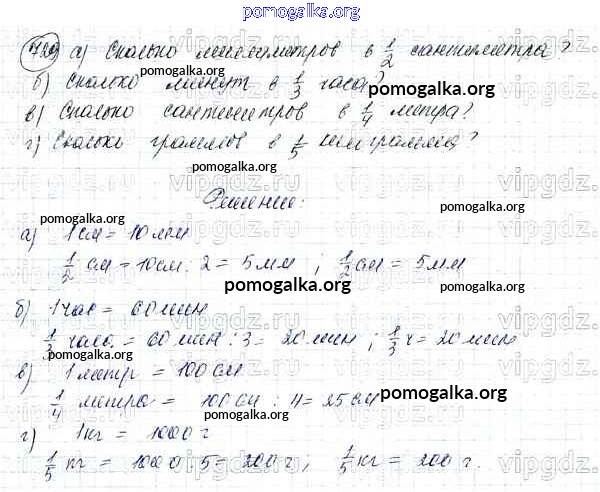 pomogalka.org
729) а) Сколько миллиметров в 1/2 сантиметра?
pomogalka.org
б) Сколько минут в 1/3 часа?
pomogalka.org
в) Сколько сантиметров в 1/4 метра?
г) Сколько граммов в 1/5 килограмма?
pomogalka.org
pomogalka.org
vipgdz.ru
vipgdz.
Решение:
pomogalka.org
pomogalka.org
а) 1 см = 10 мм
1/2 см = 10см : 2 = 5 мм ; 1/2 см = 5 мм
pomogalka.org
б) 1 час = 60 мин
1/3 часа = 60 мин : 3 = 20 мин ; 1/3 ч = 20 мин
pomogalka.org
в) 1 метр = 100 см
1/4 метра = 100 см : 4 = 25 см
pomogalka.org
pomogalka.org
г) 1 кг = 1000 г
1/5 кг = 1000 : 5 = 200 г ; 1/5 кг = 200 г.